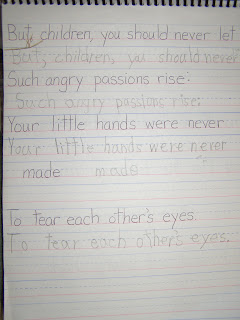 But, children, you should never let
But, children, you should never
Such angry passions rise:
Such angry passions rise:
Your little hands were never
Your little hands were never
made made
To tear each other's eyes.
To tear each other's eyes.